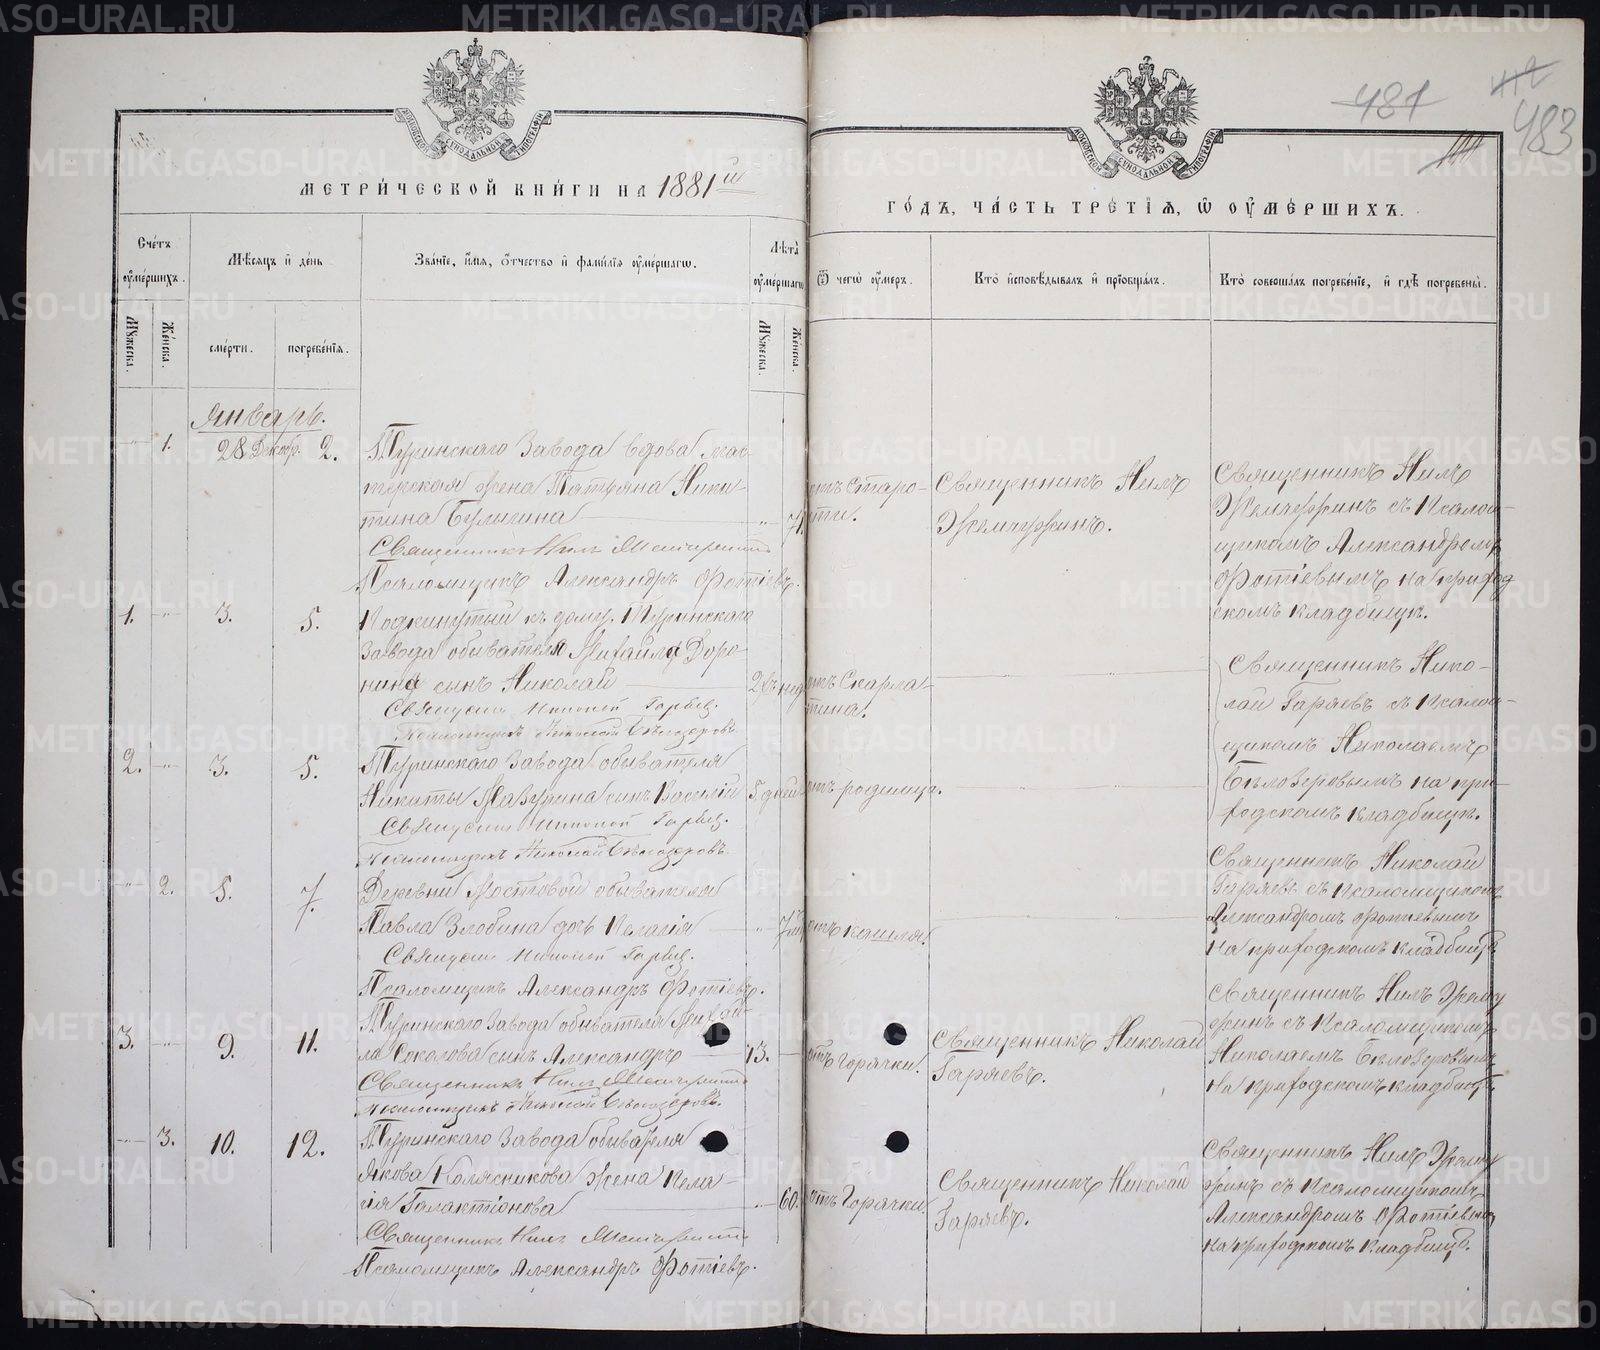 МОСКОВСКОЙ СѴНОДАЛЬНОЙ ТИПОГРАФІИ
МЕТРИ́ЧЕСКОЙ КНИ́ГИ НА 1881 й
Сче́тъ ᲂумершихъ.
Мѣсяцъ и день
Зва́нїе, и́мя, ѻтчество и фами́лїя ᲂуме́ршагѡ.
Лѣта ᲂуме́ршагѡ
Мꙋжеска.
Же́нска.
сме́рти.
погребе́нїя.
Мꙋжеска.
Же́нска.
Январь.
1.
28 Декабр.
2.
Туринскаго Завода вдова мас-
терская жена Татьяна Ники-
тина Булыгина
Священникъ Нилъ Жемчужинъ
Псаломщикъ Александръ Фотіевъ.
1.
3.
5.
Подкинутый къ дому Туринскаго
Завода обывателя Михаила Доро-
нина сынъ Николай
Священникъ Николай Гаряевъ.
Псаломщикъ Николай Бѣлозеровъ
2.
3.
5.
Туринскаго Завода обывателя
Никиты Мазурина сынъ Василій
5. дней
Священникъ Николай Гаряевъ.
Псаломщикъ Николай Бѣлозеровъ.
2.
5.
7.
Деревни Мостовой обывателя
Павла Злобина дочь Пелагія
Священникъ Николай Гаряевъ.
Псаломщикъ Александръ Фотіевъ.
3.
9.
11.
Туринскаго Завода обывателя Михаи-
ла Соколова сынъ Александръ
13.
Священникъ Нилъ Жемчужинъ
Псаломщикъ Николай Бѣлозеровъ.
3.
10.
12.
Туринскаго Завода обывателя
Якова Колясникова жена Пела-
гія Галактіонова
60.
Священникъ Нилъ Жемчужинъ
Псаломщикъ Александръ Фотіевъ.
481
483
МОСКОВСКОЙ СѴНОДАЛЬНОЙ ТИПОГРАФІИ
ГО́ДЪ, ЧА́СТЬ ТРЕ́ТЇЯ, Ѽ ОУМЕ́РШИХЪ.
Ѿ чегѡ̀ ᲂу́меръ.
Кто̀ и҆сповѣ́дывалъ и҆ прїѻбща́лъ.
Кто̀ соверша́лъ погребе́нїе, и҆ гдѣ̀ погребены̀.
отъ Старо-
сти.
Священникъ Нилъ
Жемчужинъ.
Священникъ Нилъ
Жемчужинъ съ Псалом-
щикомъ Александромъ
Фотіевымъ на приход
скомъ кладбищѣ.
отъ Скарла-
тина.
Священникъ Нико-
лай Гаряевъ съ Псалом-
щикомъ Николаемъ
Бѣлозеровымъ на при-
ходскомъ кладбищѣ.
отъ родимца.
отъ кашля.
Священникъ Николай
Гаряевъ съ Псаломщикомъ
Александромъ Фотіевымъ
на приходскомъ кладбищѣ
отъ Горячки.
Священникъ Николай
Гаряевъ.
Священникъ Нилъ Жемчу
жинъ съ Псаломщикомъ
Николаемъ Бѣлозеровымъ
на приходскомъ кладбищѣ
отъ Горячки
Священникъ Николай
Гаряевъ.
Священникъ Нилъ Жемчу
жинъ съ Псаломщикомъ
Александромъ Фотіевымъ
на приходскомъ кладбищѣ.
METRIKI.GASO-URAL.RU